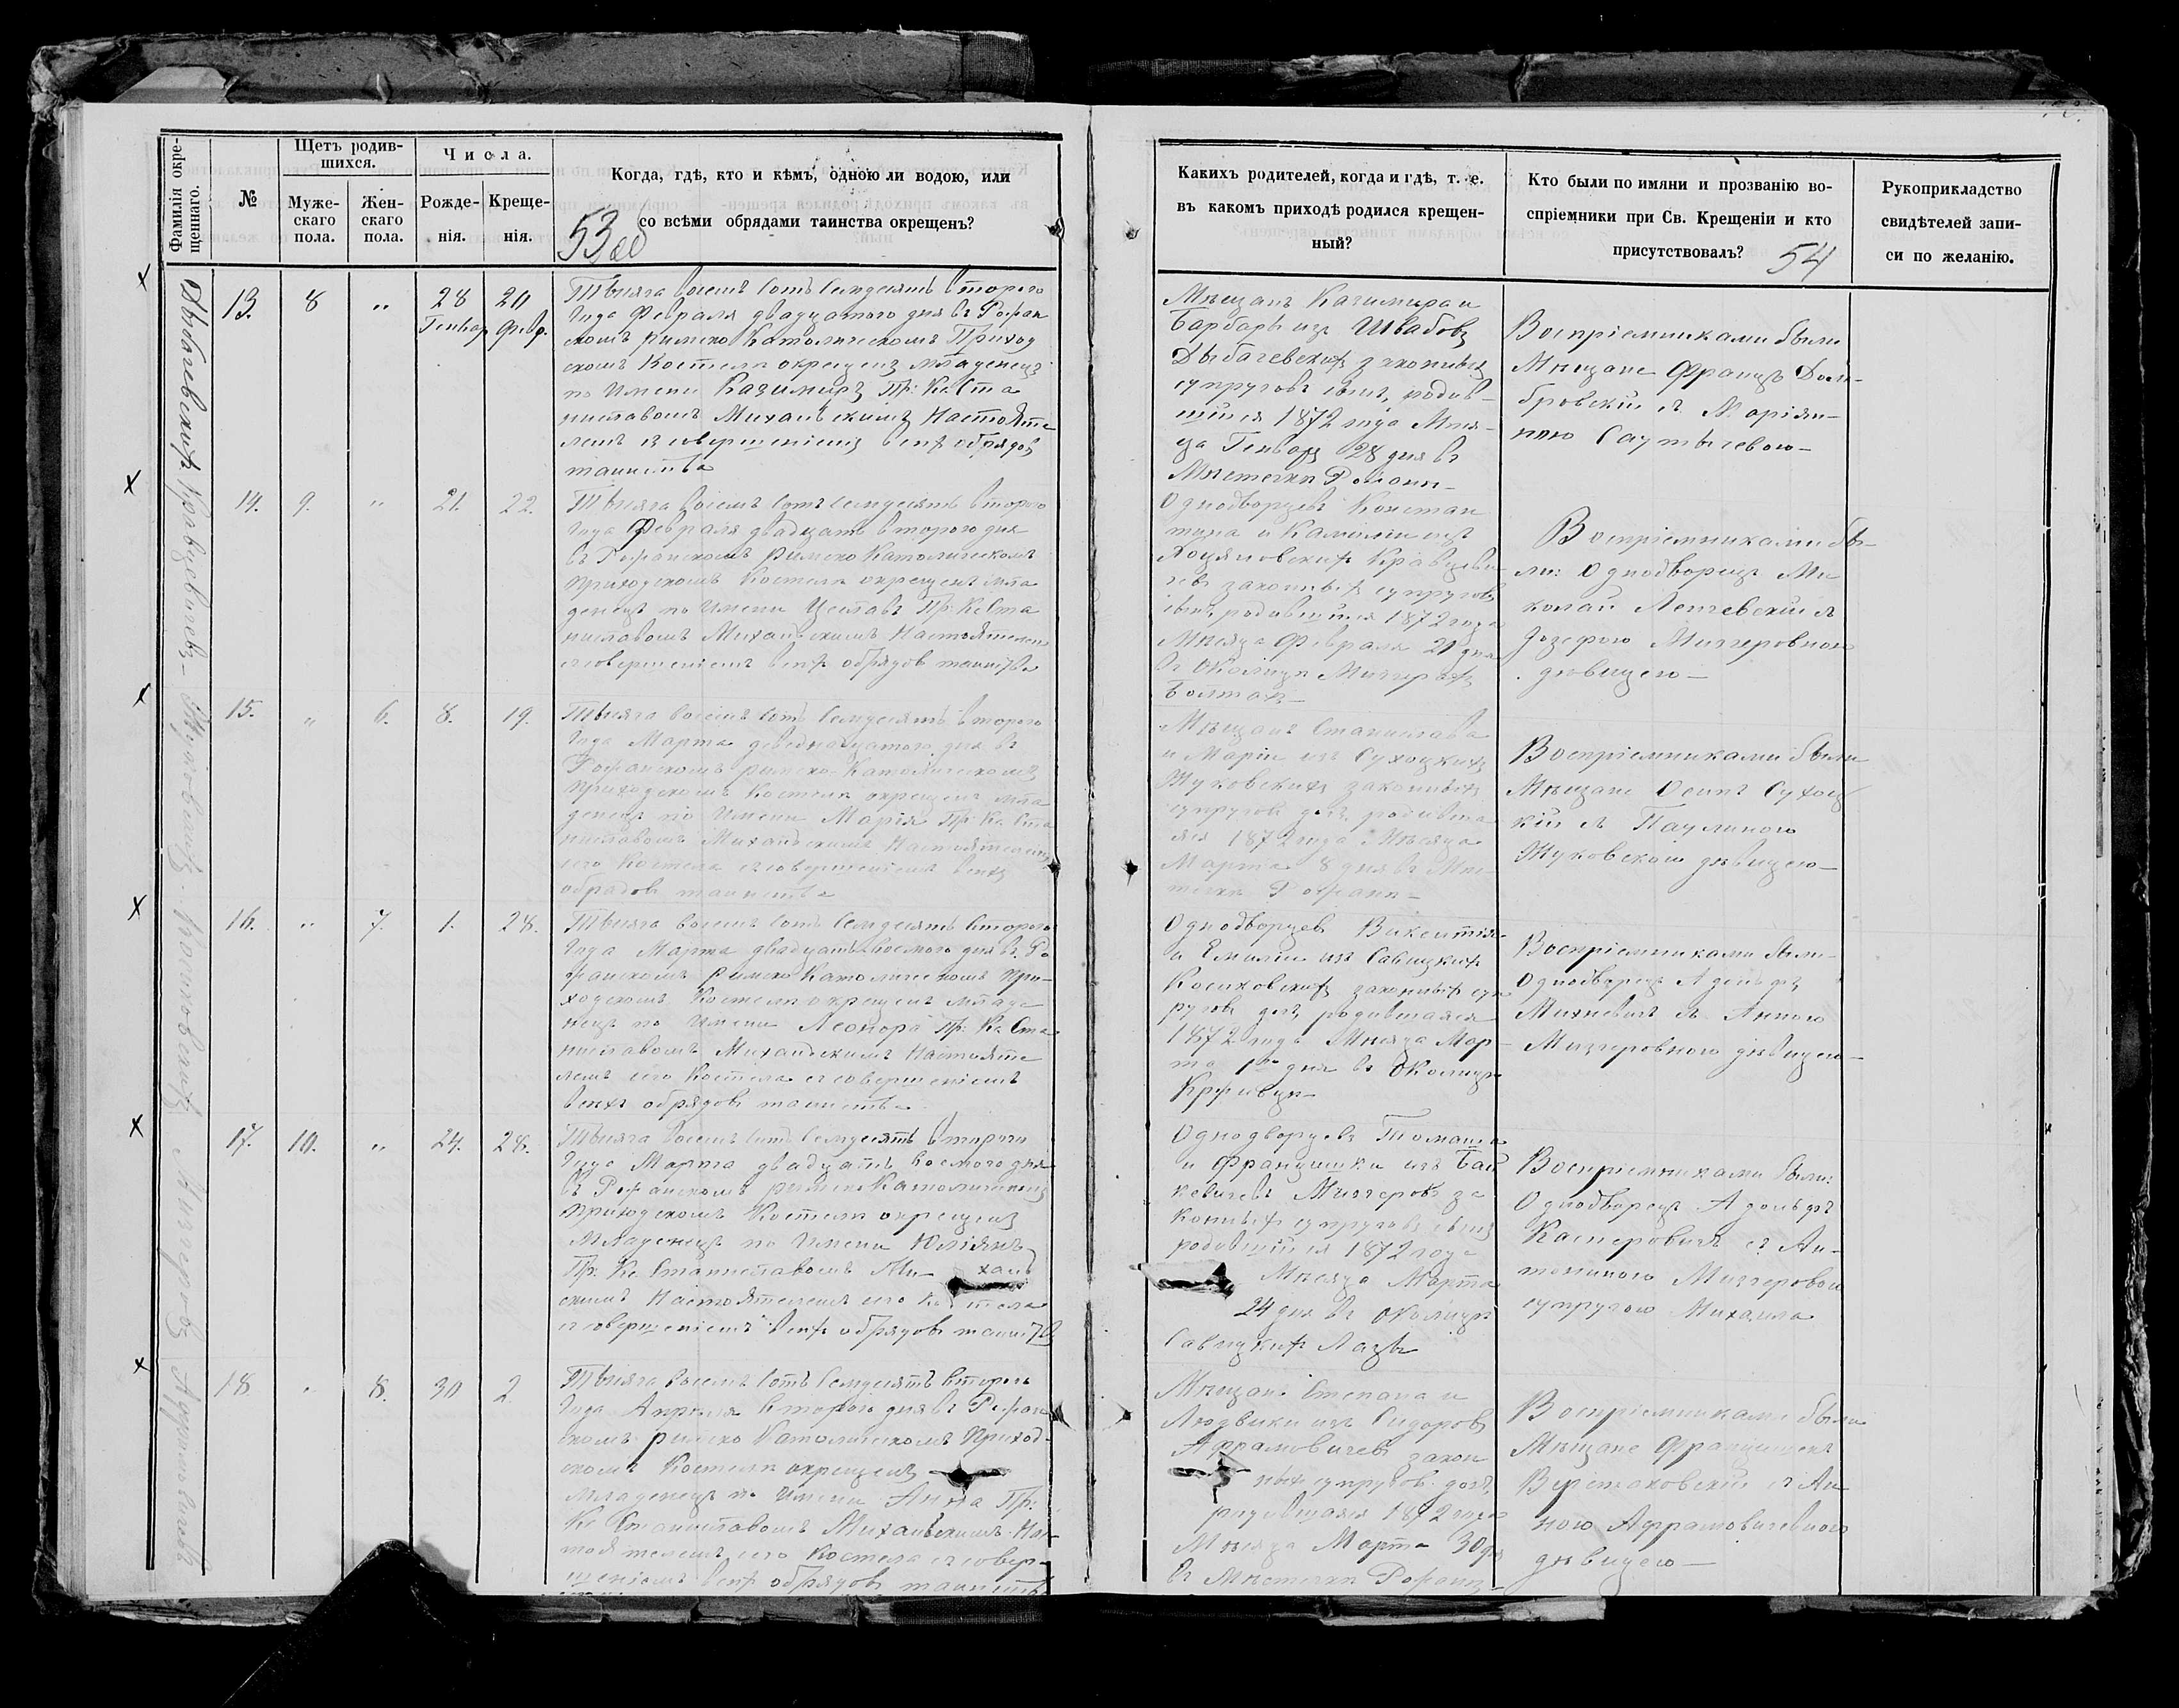 Фамилія окре-
щеннаго.
№
Щетъ родив-
шихся.
Муже-
скаго
пола.
Жен-
скаго
пола.
Числа.
Рожде-
нія.
Креще-
нія.
Когда, гдѣ, кто и кѣмъ, одною ли водою, или
со всѣми обрядами таинства окрещенъ?
53 об
Какихъ родителей, когда и гдѣ, т. е.
въ какомъ приходѣ родился крещен-
ный?
Кто были по имяни и прозванію во-
спріемники при Св. Крещеніи и кто
присутствовалъ?
54
Рукоприкладство
свидѣтелей запи-
си по желанію.
13. 8 " 28 20
Генвар Февр.
Тысяча восемь сотъ семдесятъ втораго
года Февраля двадцатого дня въ Рофан
скомъ римско Католическомъ Приход
скомъ Костелѣ окрещенъ младенецъ
по имени Казимиръ Пр: Кс: Ста
ниславомъ Михальскимъ Настояте
лемъ съ совершеніемъ всѣхъ обрядов
таинства
Мѣщанъ Казимира и
Барбары изъ Швабовъ
законныхъ
супруговъ сынъ, родив-
шійся 1872 года Мѣся-
ца Генвар 28 дня въ
Мѣстечкѣ
Воспріемниками были
Мѣщане Францъ Дом-
бровскій съ Маріян-
ною
14. 9. " 21. 22.
Тысяча восемь сотъ семдесятъ втораго
года Февраля двадцать второго дня
въ Рофанскомъ римско Католическомъ
приходскомъ Костелѣ окрещенъ мла
денецъ по имени Цеславъ Пр: Кс Ста
ниславомъ Михальскимъ Настоятелем
съ совершеніемъ всѣхъ обрядов таинства
Однодворцевъ Констан
тина и Камиліи изъ
законныхъ супругов
сынъ родившійся 1872 года
Мѣсяца Февраля 21 дня
въ Околицѣ
Воспріемниками бы-
ли: Однодворецъ Ми
колай съ
Іозефою Мицеровною
дѣвицею —
15. " 6. 8. 19.
Тысяча восемь сотъ семдесятъ втораго
года Марта деведнадцатого дня въ
Рофанскомъ римско-Католическомъ
приходскомъ Костелѣ окрещенъ мла
денецъ по имени Марія Пр: Кс. Ста
ниславомъ Михальскимъ Настоятелемъ
сего Костела съ совершеніемъ всѣхъ
обрядов таинства
Мѣщанъ Станислава
и Маріи изъ Сухоцкихъ
Жуковскихъ законныхъ
супругов дочь, родивша
яся 1872 года Мѣсяца
Марта 8 дня въ Мѣс
течкѣ
Воспріемниками были
Мѣщане Осипъ Сухоц
кій съ Паулиною
Жуковскою дѣвицею —
16. " 7. 1. 28.
Тысяча восемь сотъ семдесятъ втораго
года Марта двадцать восмого дня въ Ро
фанскомъ римско Католическомъ при-
ходскомъ Костелѣ окрещенъ младе
нецъ по имени Леонора Пр: Кс Ста
ниславомъ Михальскимъ Настояте
лемъ сего Костела съ совершеніемъ
всѣхъ обрядовъ таинства
Однодворцев Викентія
и Емиліи изъ Савицкихъ
законныхъ суп
руговъ дочь, родившаяся
1872 года Мѣсяца Мар-
та 1го дня въ Околицѣ
Воспріемниками были
Однодворецъ Адольфъ
Михневичъ съ Анною
Мицеровною дѣвицею —
17. 10. " 24. 28.
Тысяча восемь сотъ семдесятъ втораго
года Марта двадцать восмого дня
въ Рофанскомъ римско Католическомъ
приходскомъ Костелѣ окрещенъ
Младенецъ по имени Юліянъ
Пр: Кс Станиславомъ Ми- халь
скимъ Настоятелемъ сего Костела
съ совершеніемъ всѣхъ обрядовъ таинства
Однодворцевъ Томаша
и Францишки изъ
законныхъ супруговъ сынъ
родившійся 1872 года
Мѣсяца Марта
24 дня въ Околицѣ
Савицкихъ Лазы
Воспріемниками были:
Однодворецъ Адольфъ
Касперовичъ съ Ан-
тониною Мицеровою
супругою Михаила
18. " 8. 30 2
Тысяча восемь сотъ семдесятъ втораго
года Апрѣля второго дня въ Рофан
скомъ римско Католическомъ Приход-
скомъ Костелѣ окрещенъ
Младенецъ по имени Анна Пр:
Кс Станиславомъ Михальскимъ Нас-
тоятелемъ сего Костела съ совер-
шеніемъ всѣхъ обрядовъ таинства
Мѣщанъ Степана и
Людвики изъ Сидоровъ
Афрамовичевъ закон
ныхъ супругов дочь,
родившаяся 1872 года
Мѣсяца Марта 30 дня
въ Мѣстечкѣ
Воспріемниками были
Мѣщане Францишекъ
съ Ан-
ною Афрамовичевною
дѣвицею —